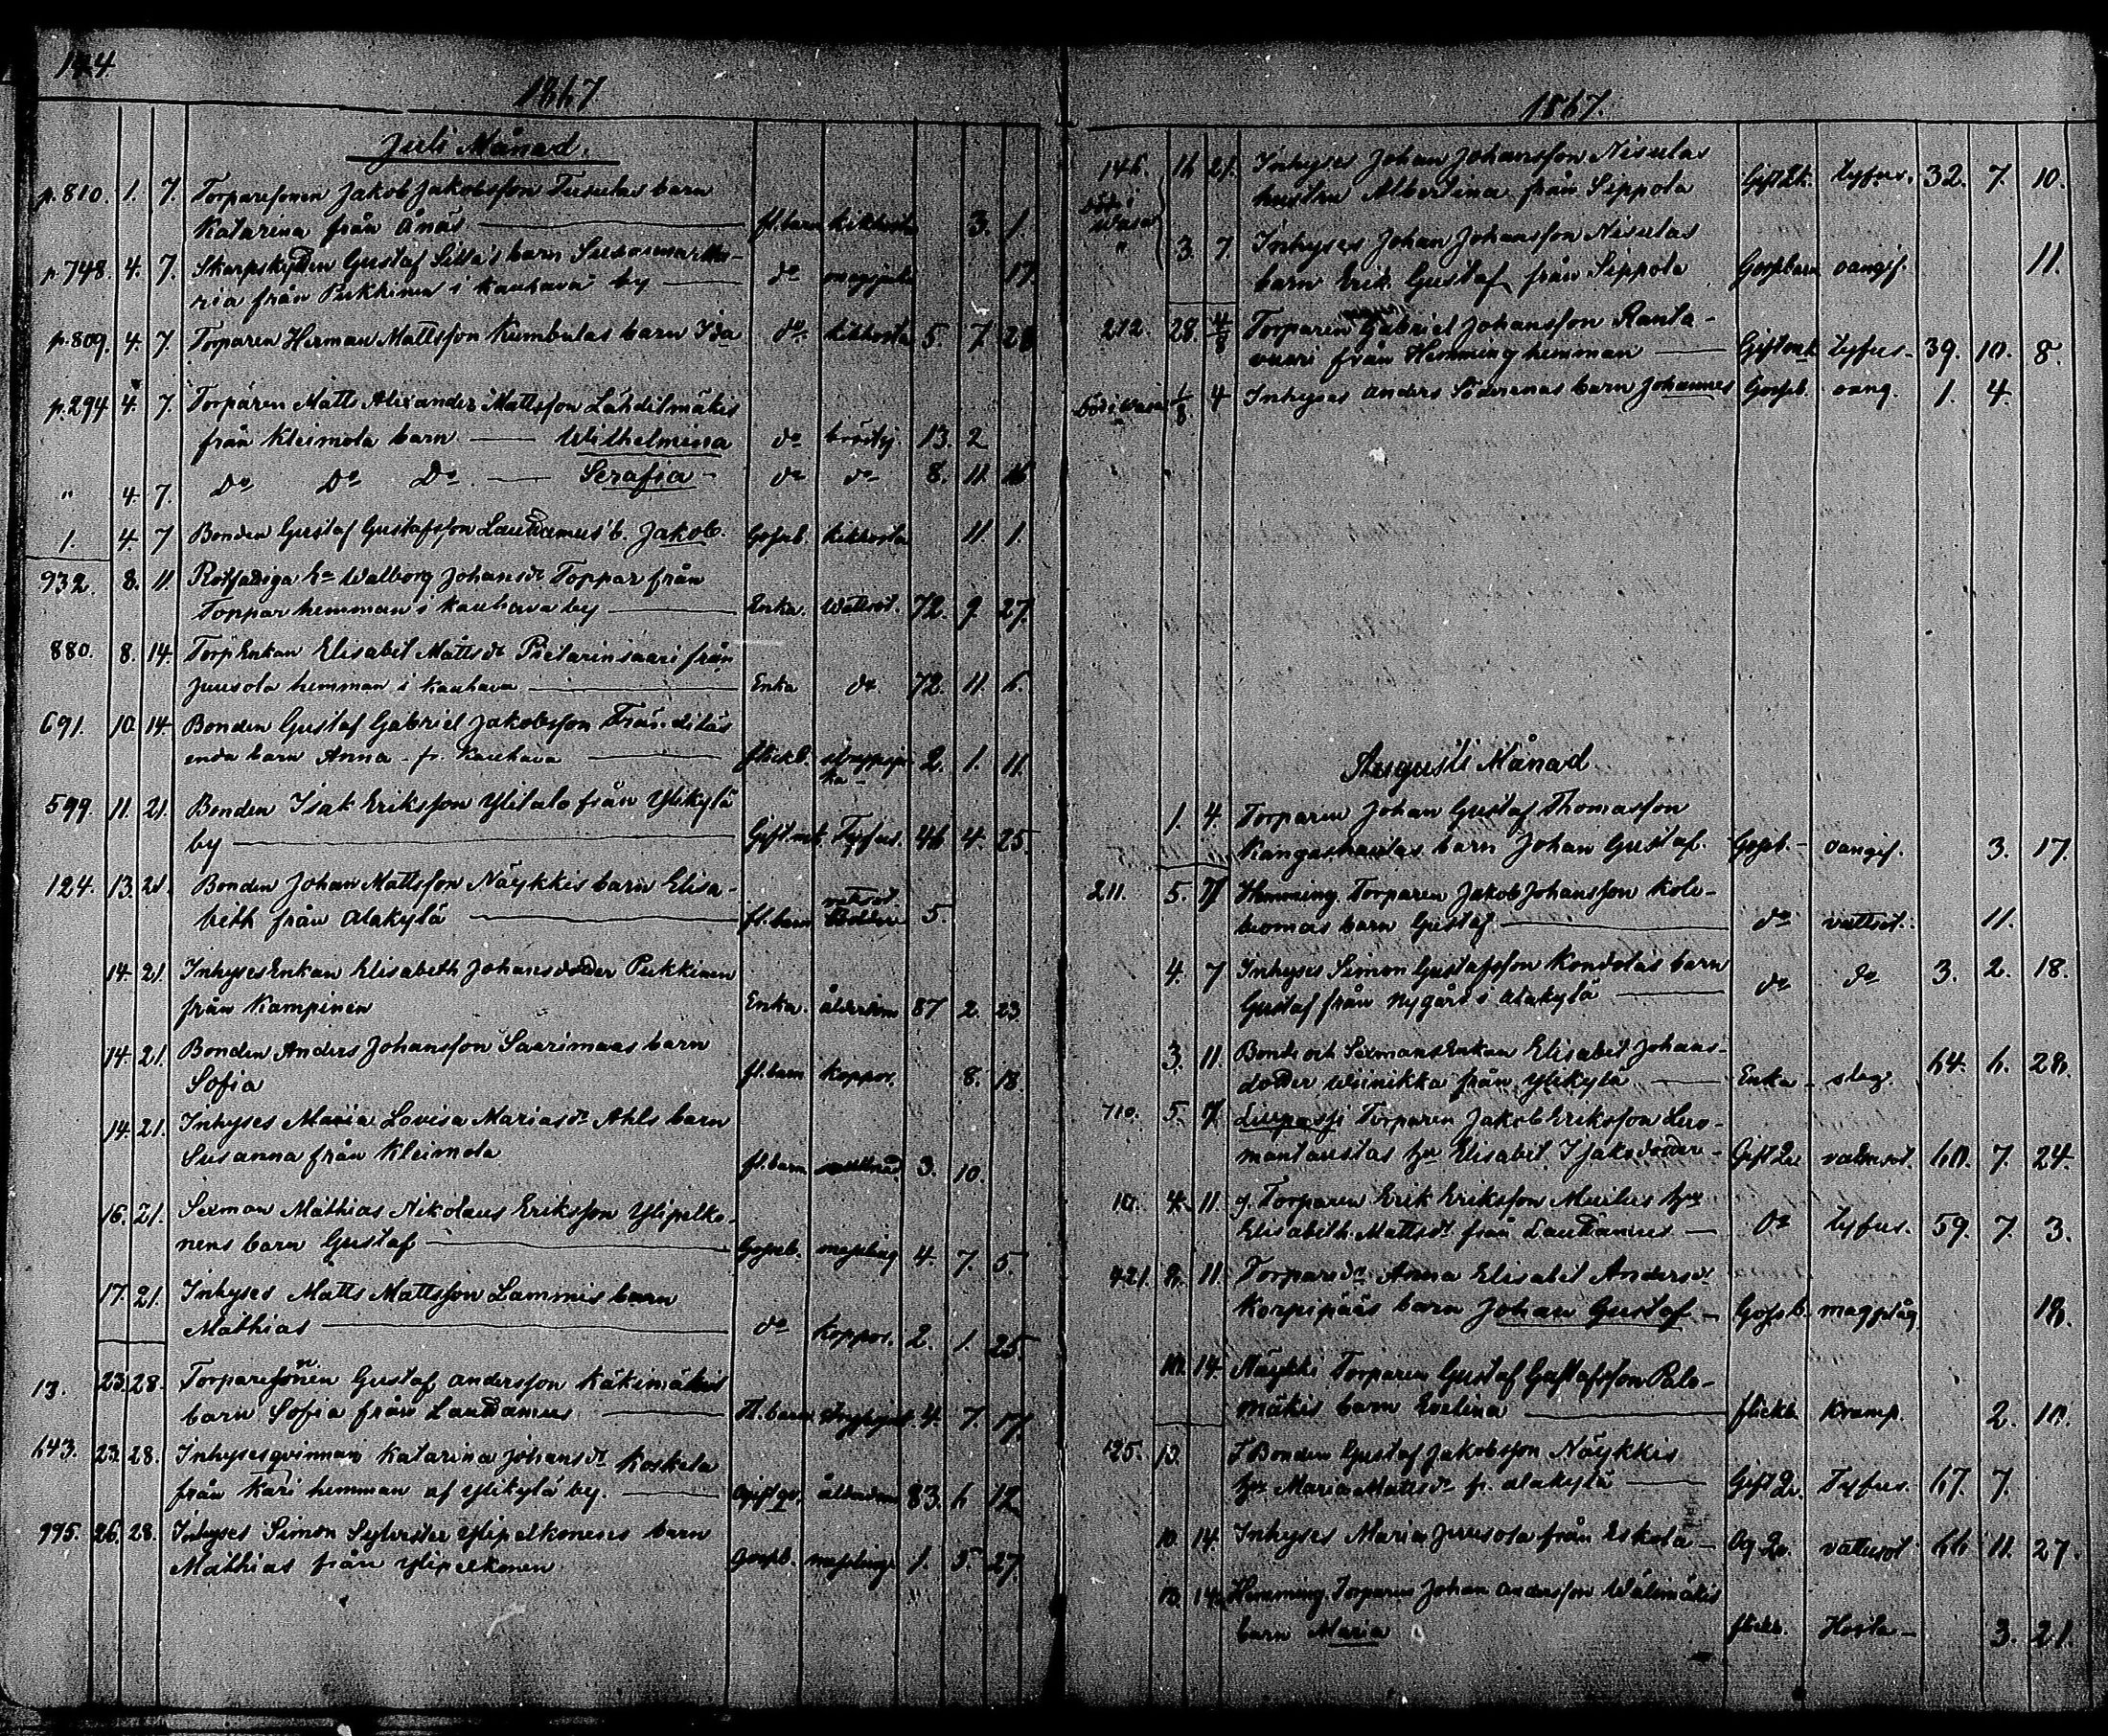 144
1867
Juli Månad.
p. 810. 1. 7. Torparesonen Jakob Jakobsson Tusulas barn
Katarina från Ånäs fl. barn kikhosta 3. 1.
p. 748. 4. 7. Skarpskytten Gustaf barn
ria från Pukkinen i Kauhava by do 17.
p. 809. 4. 7. Torparen Herman Mattsson Kumbulas barn Ida do kikhosta 5. 7. 28
p. 294 4. 7. Torparen Matts Alexander Mattsson Lähdesmäkis
från Kleimola barn Wilhelmina do 13. 2
" 4. 7. Do Do Do Serafia do do 8. 11. 16
1. 4. 7 Bonden Gustaf Gustafsson Laudamus' b. Jakob. Gossb. kikhosta 11. 1.
932. 8. 11. Rotfattiga hn Walborg Johansdr Toppar från
Toppar hemman i Kauhava by Enka. Wattsot. 72. 9. 27.
880. 8. 14. TorpEnkan Elisabet Mattsdr Pietarinsaari från
Juusola hemman i Kauhava Enka do 72. 11. 6.
691. 10. 14. Bonden Gustaf Gabriel Jakobsson
enda barn Anna - fr. Kauhava flickb. 2. 1. 11.
599. 11. 21. Bonden Isak Eriksson Ylitalo från Ylikylä
by Gift.m. Tyfus. 46 4. 25.
124. 13. 21. Bonden Johan Mattsson Näykkis barn Elisa-
beth från Alakylä fl. barn 5.
14. 21. InhysesEnkan Elisabeth Johansdotter Pukkinen
från Kampinen Enka. ålderdom 87 2. 23.
14. 21. Bonden Anders Johansson Saarimaas barn
Sofia fl. barn koppor. 8. 18.
14. 21. Inhyses Maria Lovisa Mariasdr Ahls barn
Susanna från Kleimola fl. barn 3. 10.
16. 21. Sexman Mathias Nikolaus Eriksson Ylipelko-
nens barn Gustaf Gosseb. messling 4. 7. 5.
17. 21. Inhyses Matts Mattsson Lammis barn
Mathias do koppor. 2. 1. 25.
13. 23. 28. Torparesonen Gustaf Andersson Käkimäkis
barn Sofia från Laudamus fl. barn 4. 7. 17.
643. 23. 28. Inhysesqvinnan Katarina Johansdr Koskela
från Kari hemman af Ylikylä by. Ogift qv. ålderdom 83. 6 12
995. 26. 28. Inhyses Simon Sylvester Ylipelkonens barn
Mathias från Ylipelkonen Gossb. messling 1. 5. 27.
1867.
146. 16 21. Inhyses Johan Johansson Nisulas
hustru Albertina från Sippola tyfus. 32. 7. 10.
Död i Wasa " 3. 7. Inhyses Johan Johansson Nisulas
barn Erik Gustaf från Sippola Gossbarn oangif. 11.
212. 28. 4/8 Torparen Gabriel Johansson Ranta-
vuori från Hemming hemman Gift tyfus 39. 10. 8.
Död i Wasa 1/8 4 Inhyses Anders Söderenas barn Johannes Gossb. oang. 1. 4.
Augusti Månad
1. 4. Torparen Johan Gustaf Thomasson
Kangashautas barn Johan Gustaf. Gossb. oangif. 3. 17.
211. 5. 7 Hemming. Torparen Jakob Johansson Kole-
barn Gustaf do vattsot. 11.
4. 7 Inhyses Simon Gustafsson Kondolas barn
Gustaf från Nygård i Alakylä do do 3. 2. 18.
3. 11. Bonde och SexmansEnkan Elisabet Johans-
dotter Wiinikka från Ylikylä Enka slag. 64. 6. 28.
710. 5. 7 Luopajärvi Torparen Jakob Eriksson Luo-
mantaustas hu Elisabet Isaksdotter Gift Qv. vattusot. 60. 7. 24.
10. 4. 11. g. Torparen Erik Eriksson Muilus hu
Elisabeth Mattsdr från Laudamus Do tyfus. 59. 7. 3.
421. 8. 11. Torparedr Anna Elisabet Andersdr
Korpipääs barn Johan Gustaf Gossb. magplåg. 18.
10. 14. Näykki Torparen Gustaf Gustafsson Palo-
mäkis barn Evelina flickb. Kramp. 2. 10.
125. 13. F. Bonden Gustaf Jakobsson Näykkis
hu Maria Mattsdr fr. Alakylä Gift Qv. Tyfus. 67. 7.
10. 14. Inhyses Maria Juusola från Eskola Og Qv. vattusot 66 11. 27.
10. 14. Hemming. Torparen Johan Andersson Wälimäkis
barn Maria flickb. Hosta 3. 21.